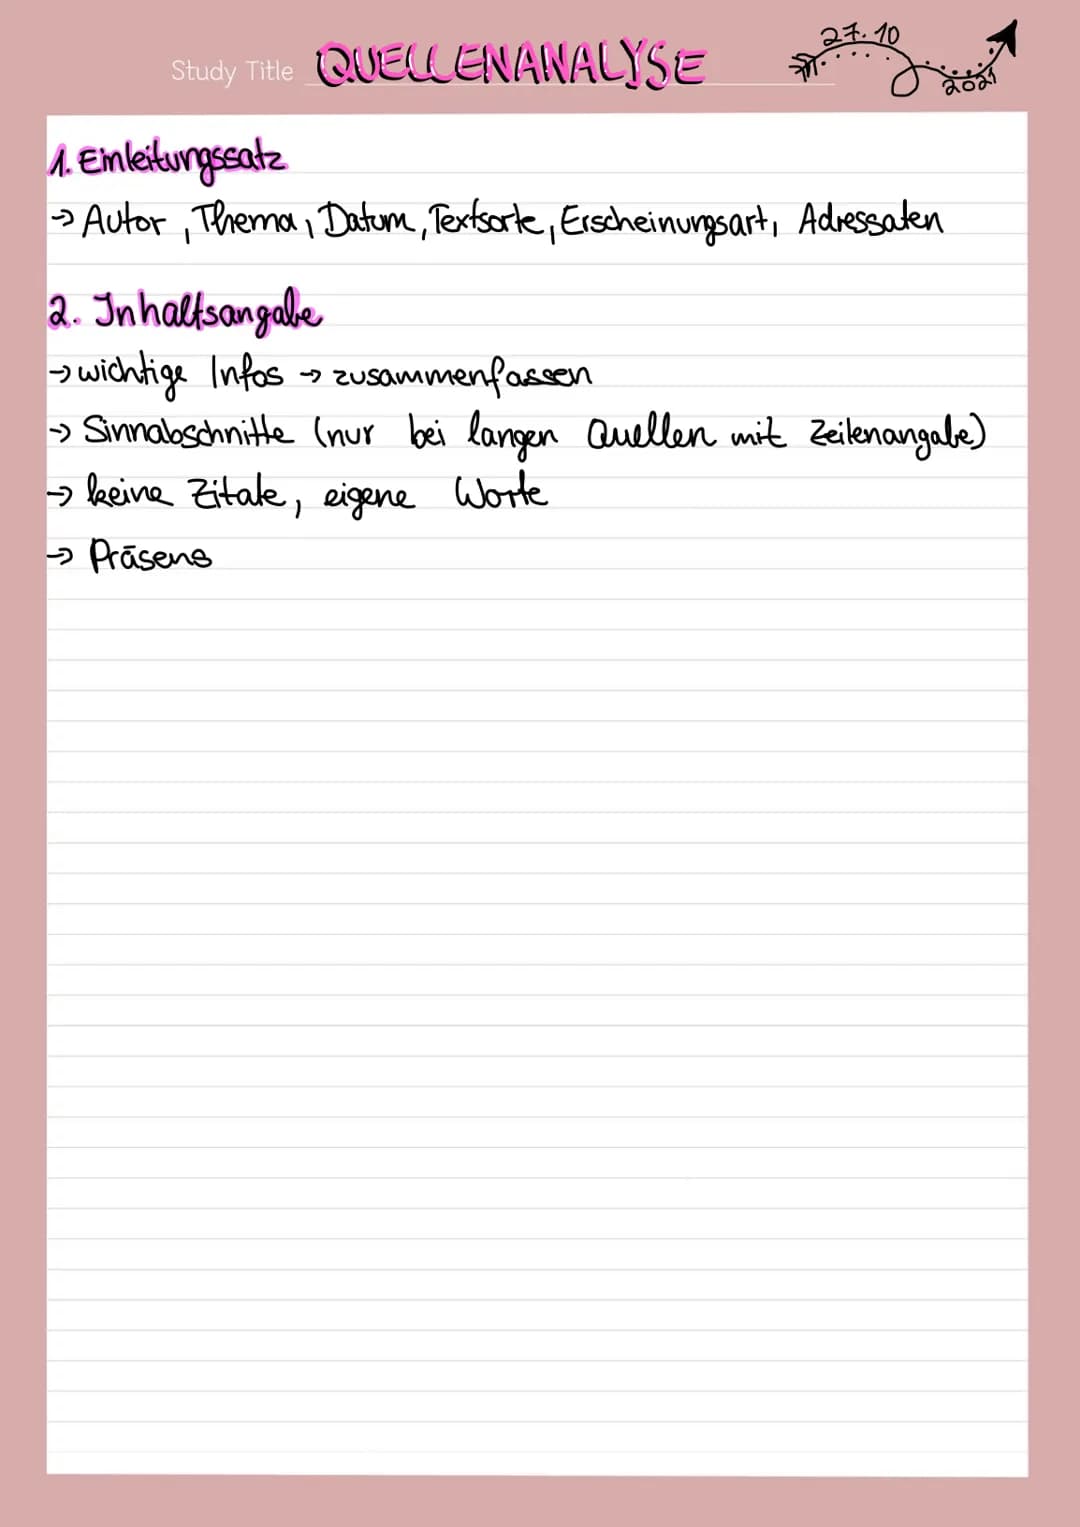 Study Title QUELLENANALYSE 27.10 2021
1. Einleitungssatz
→ Autor, Thema, Datum, Textsorte, Erscheinungsart, Adressaten
2. Inhaltsangabe
→ wichtige Infos → zusammenfassen
→ Sinnabschnitte (nur bei langen Quellen mit Zeilenangabe)
→ keine Zitate, eigene Worte
→ Präsens